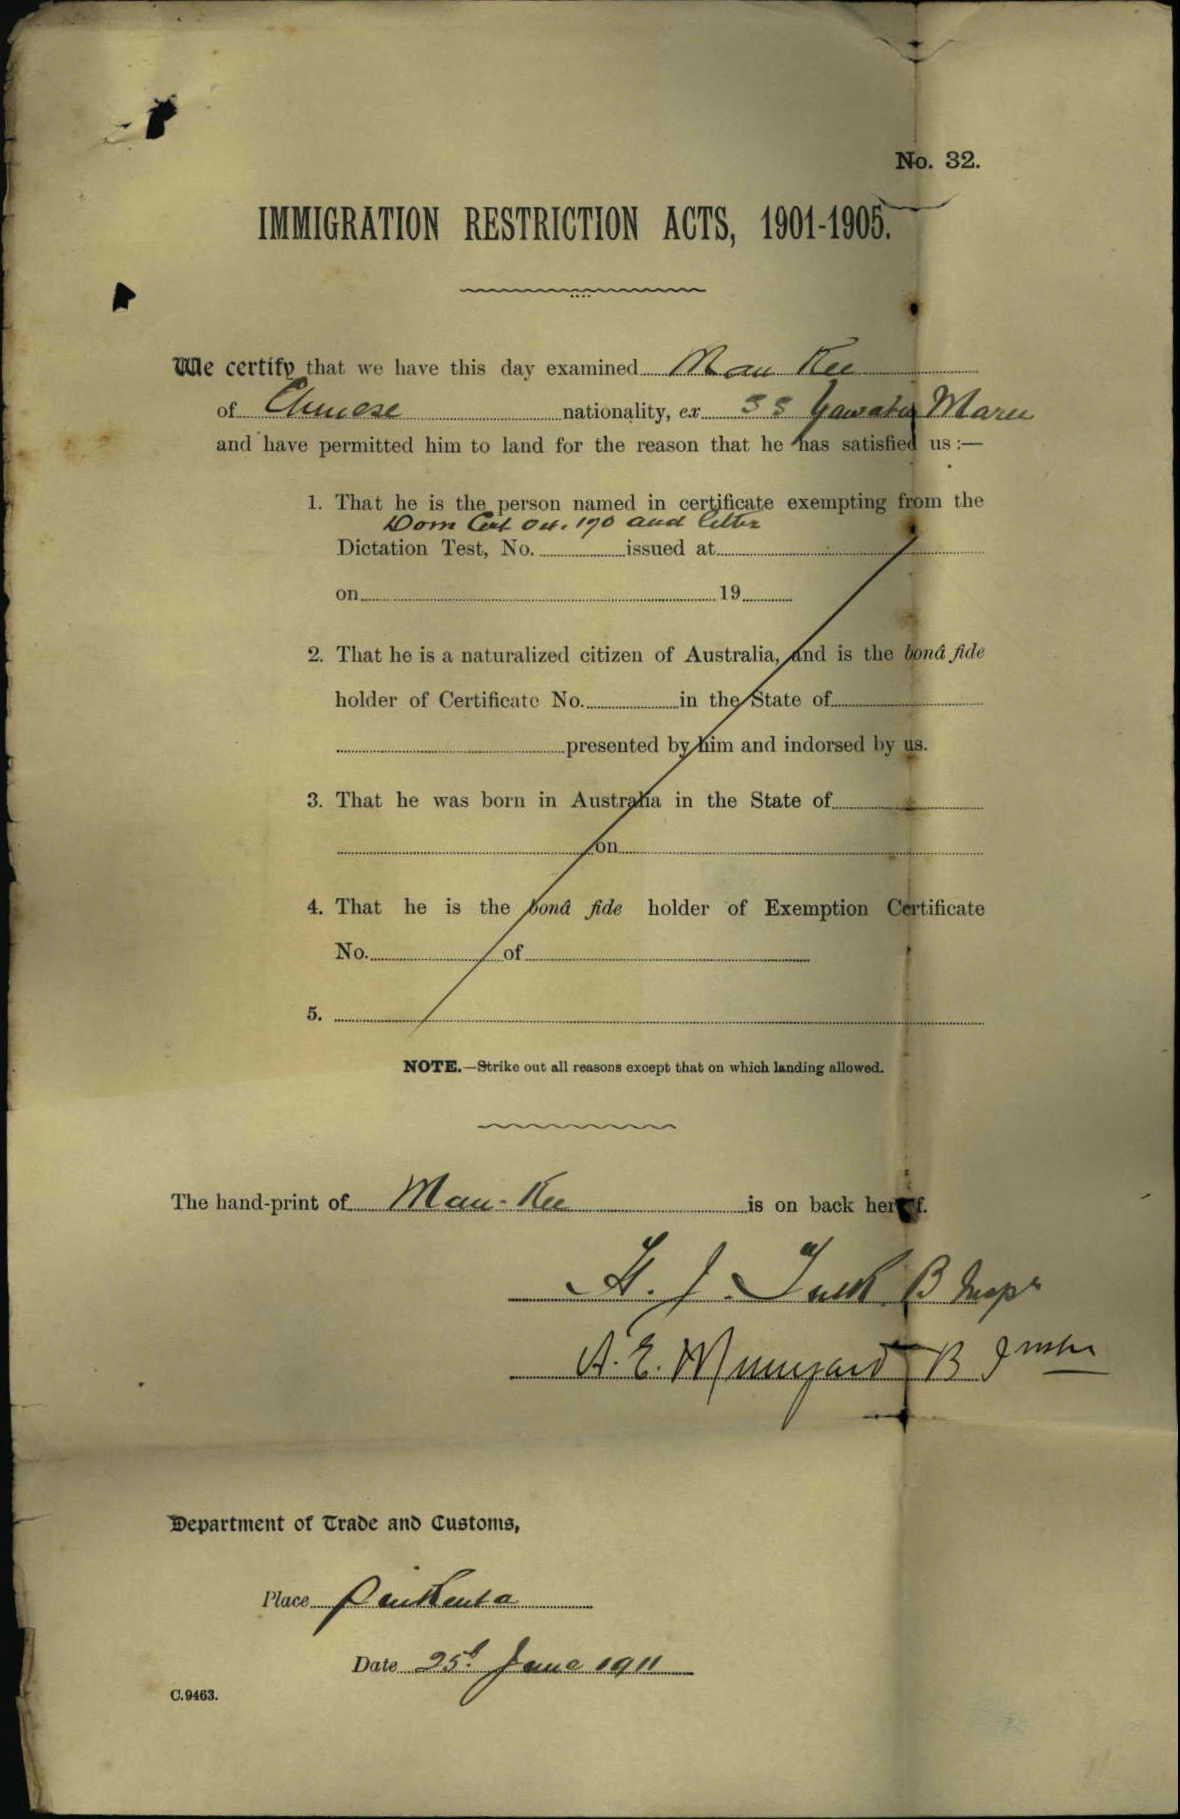 No. 32.
IMMIGRATION RESTRICTION ACTS, 1901-1905.
We certify that we have this day examined Mau Kee
of Chinese nationality, ex SS Yawata Maru
and have permitted him to land for the reason that he has satisfied us :—
1. That he is the person named in certificate exempting from the
Dom Cert 04. 190 and letter
Dictation Test, No. issued at
on 19
2. That he is a naturalized citizen of Australia, and is the bonâ fide
holder of Certificate No. in the State of
presented by him and indorsed by us.
3. That he was born in Australia in the State of
on
4. That he is the bonâ fide holder of Exemption Certificate
No. of
5.
NOTE.—Strike out all reasons except that on which landing allowed.
The hand-print of Mau-Kee is on back hereof.
H. J. Tuck B Inspr
A. E. B
Department of Trade and Customs,
Place Pinkenba
Date 25th June 1911
C.9463.